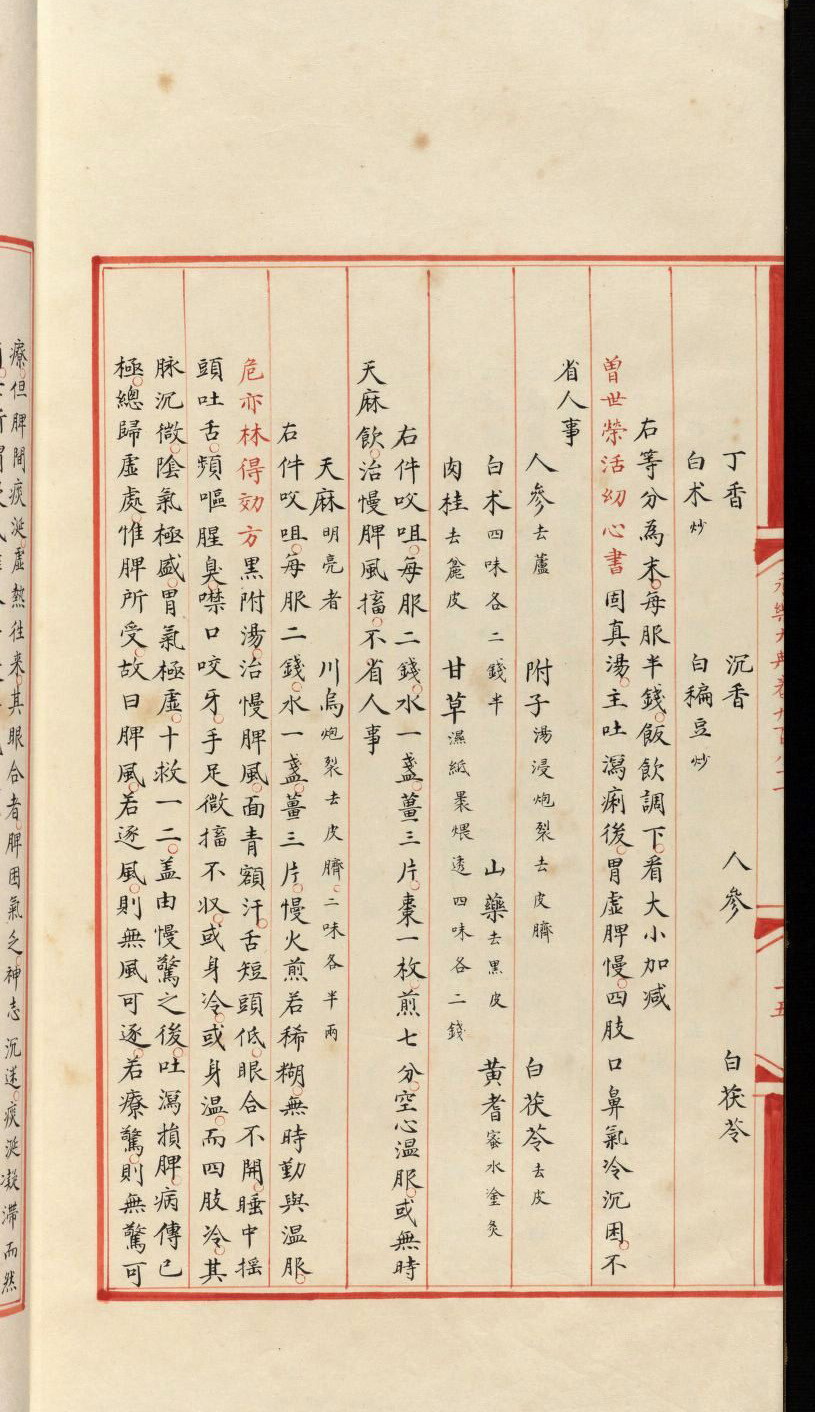 丁香 沉香 人參 白茯苓
白术炒 白稨豆炒
右等分為末。每服半錢。飯飲調下。看大小加减
曽世榮活幼心書固真湯。主吐瀉痢後。胃虚脾慢。四肢口鼻氣冷沉困。不
省人事
人參去蘆 附子湯浸炮裂去皮臍 白茯苓去皮
白术四味各二錢半 山藥去黑皮 黄耆蜜水塗炙
肉桂去麄皮 甘草濕紙褁煨透四味各二錢
右件㕮咀。每服二錢。水一盞。薑三片。棗一枚。煎七分。空心温服。或無時
天麻飲。治慢脾風搐。不省人事
天麻明亮者 川烏炮裂去皮臍。二味各半兩
右件㕮咀。每服二錢。水一盞。薑三片。慢火煎若稀糊。無時勤與温服。
危亦林得効方黒附湯。治慢脾風。面青額汗。舌短頭低。眼合不開。睡中揺
頭吐舌。頻嘔腥臭。噤口咬牙。手足微搐不収。或身冷。或身温。而四肢冷。其
脉沉微。陰氣極盛。胃氣極虚。十救一二。盖由慢驚之後。吐瀉損脾。病傳已
極。總歸虚處。惟脾所受。故曰脾風。若逐風。則無風可逐。若療驚。則無驚可
療。但脾間痰涎。虚熱往来。其眼合者。脾困氣乏。神志沉迷。痰涎凝滯而然